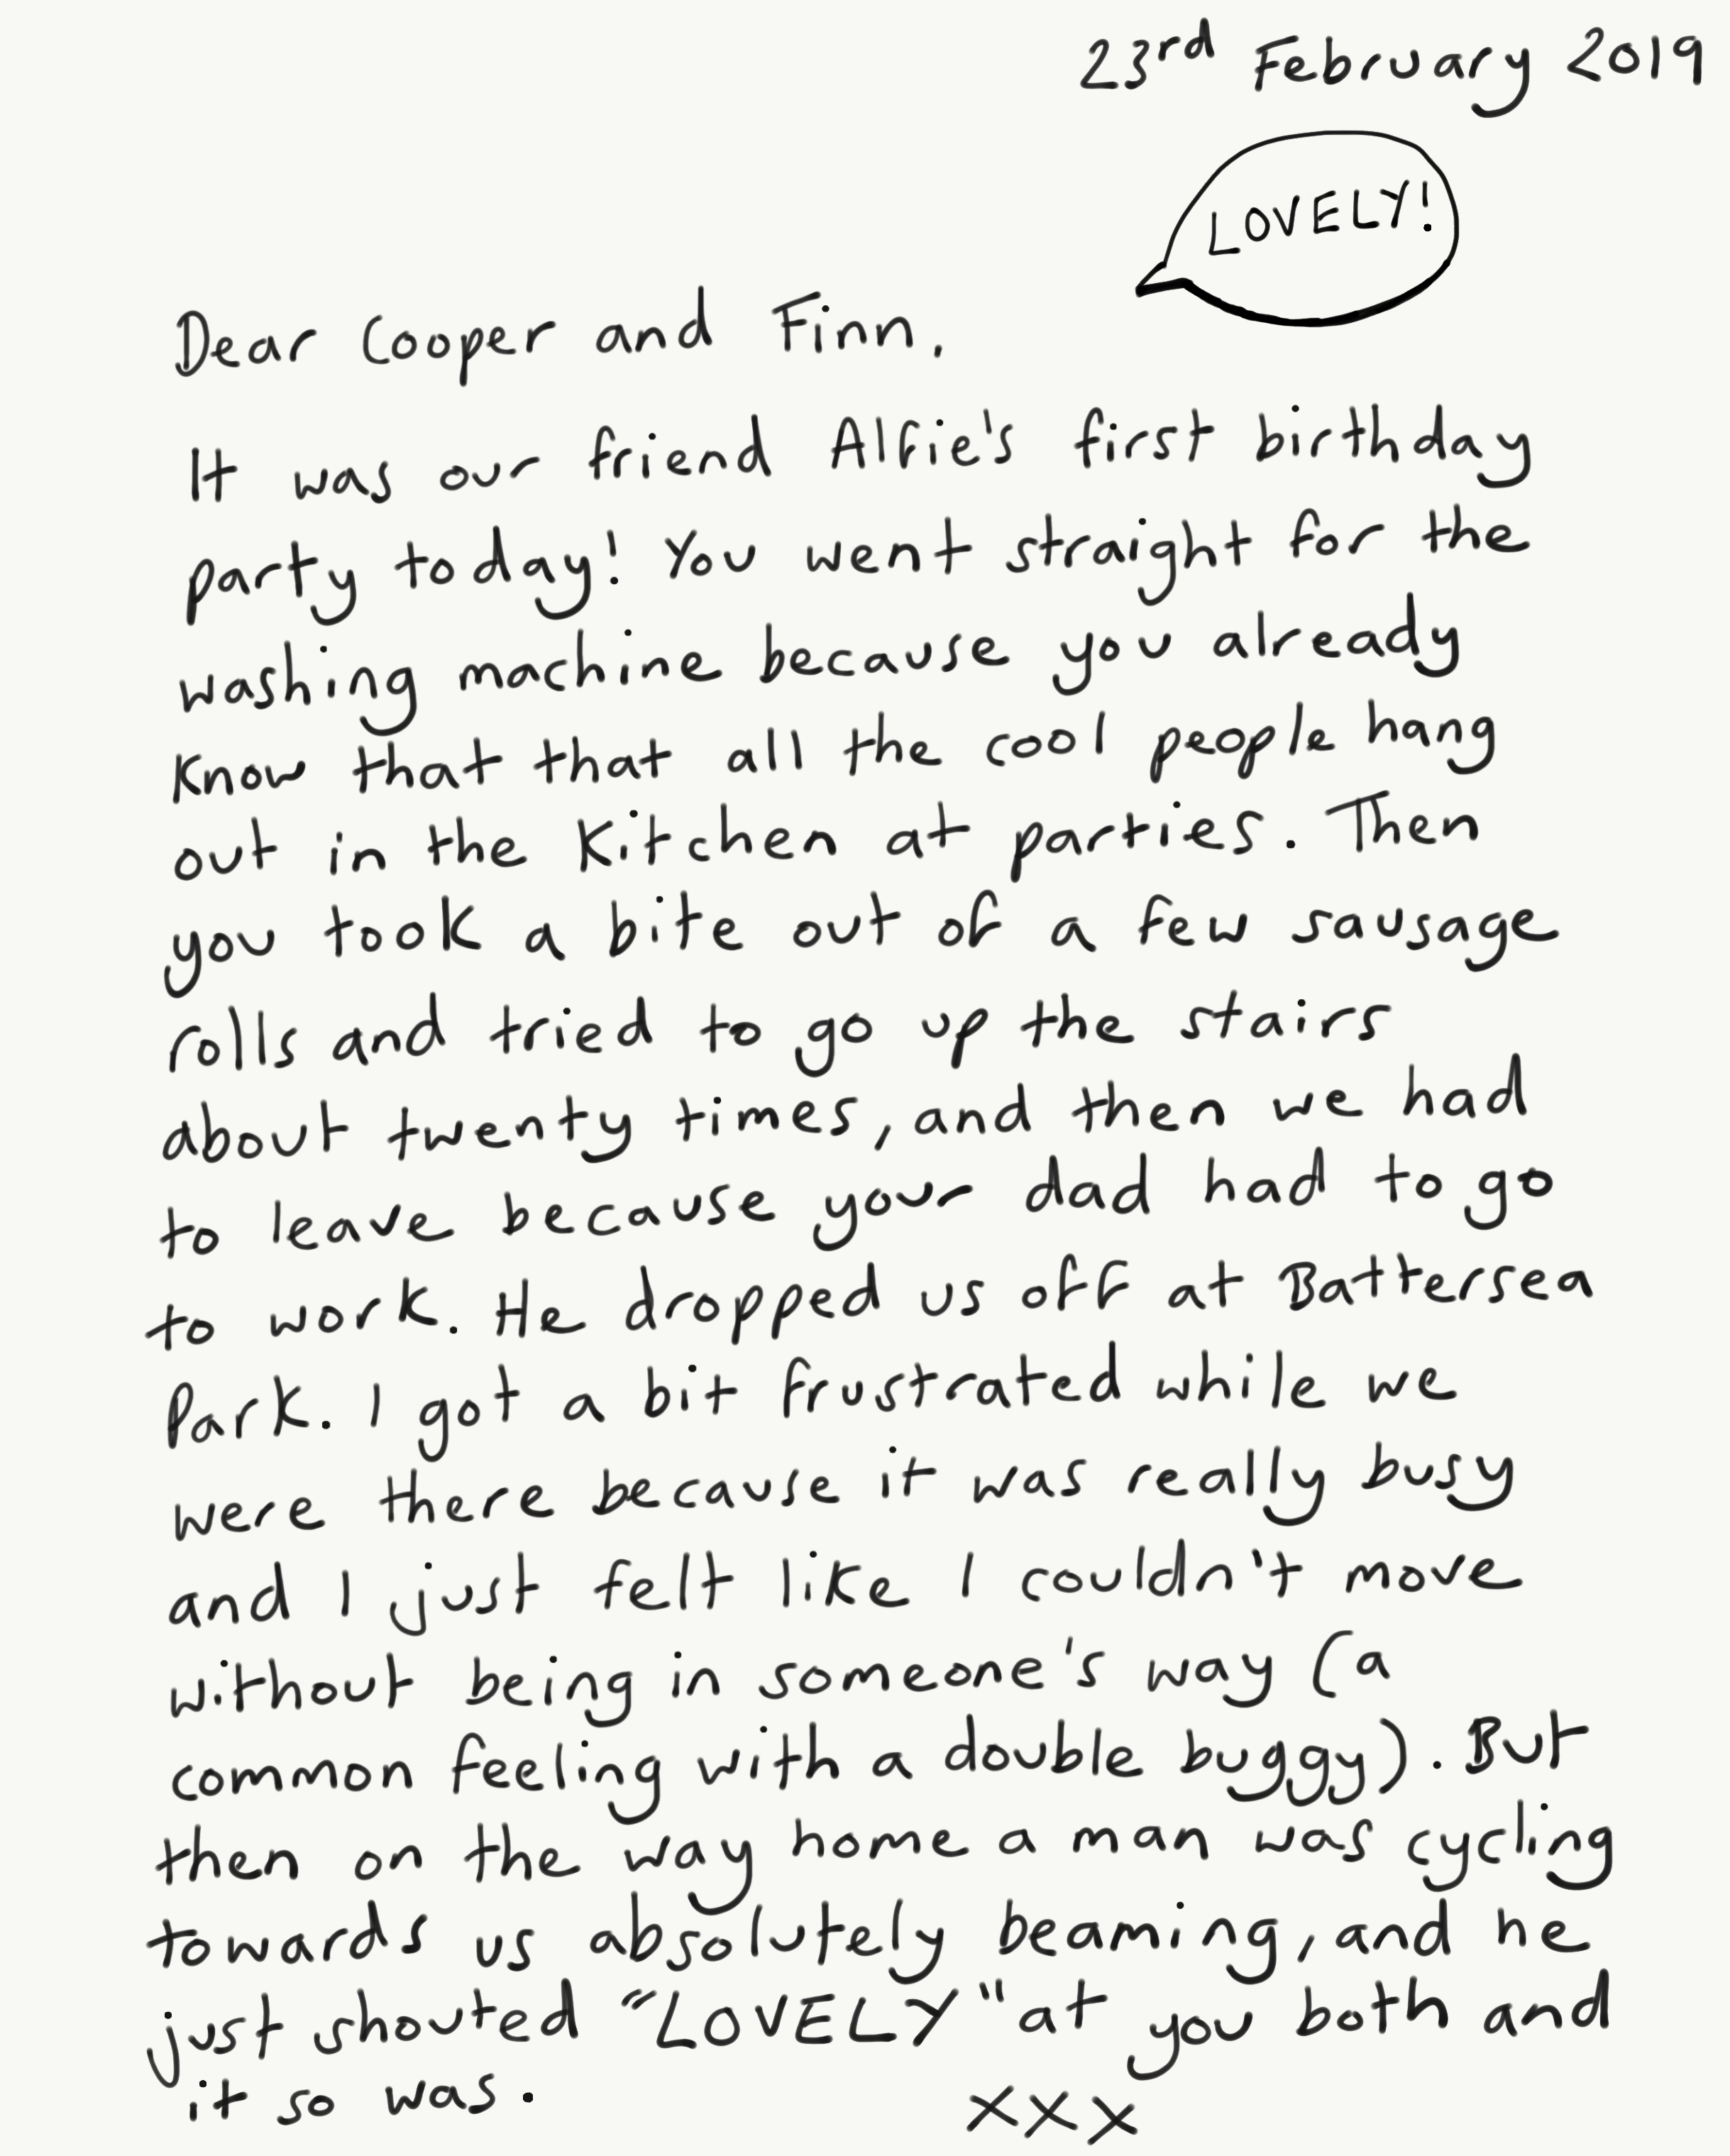 23rd February 2019
LOVELY!
Dear Cooper and Finn,
It was our friend Alfie's first birthday
party today! You went straight for the
washing machine because you already
know that that all the cool people hang
out in the kitchen at parties. Then
you took a bite out of a few sausage
rolls and tried to go up the stairs
about twenty times, and then we had
to leave because your dad had to go
to work. He dropped us off at Battersea
Park. I got a bit frustrated while we
were there because it was really busy
and I just felt like I couldn't move
without being in someone's way (a
common feeling with a double buggy). But
then on the way home a man was cycling
towards us absolutely beaming, and he
just shouted "LOVELY" at you both and
it so was.
xxx